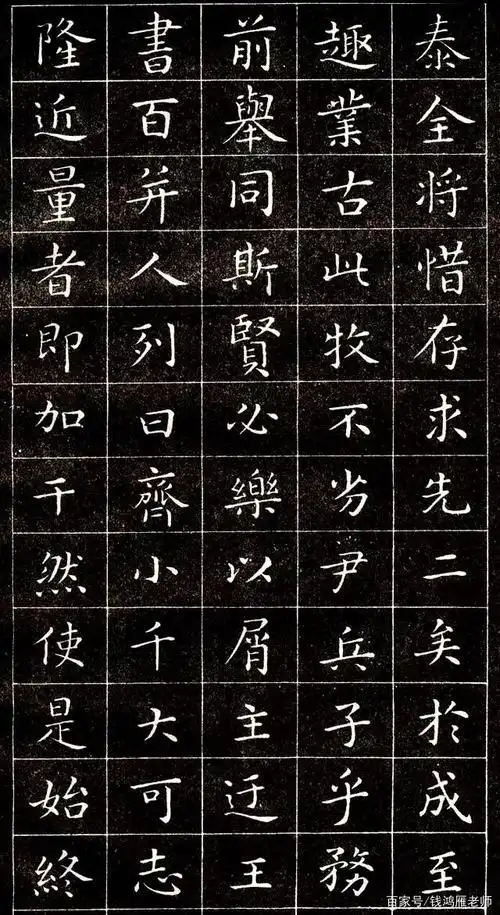 泰全将惜存求先二矣於成至
趣業古此牧不劣尹兵子乎務
前舉同斯賢必樂以屑主迂王
書百并人列曰齊小千大可志
隆近量者即加干然使是始終
百家号/钱鸿雁老师